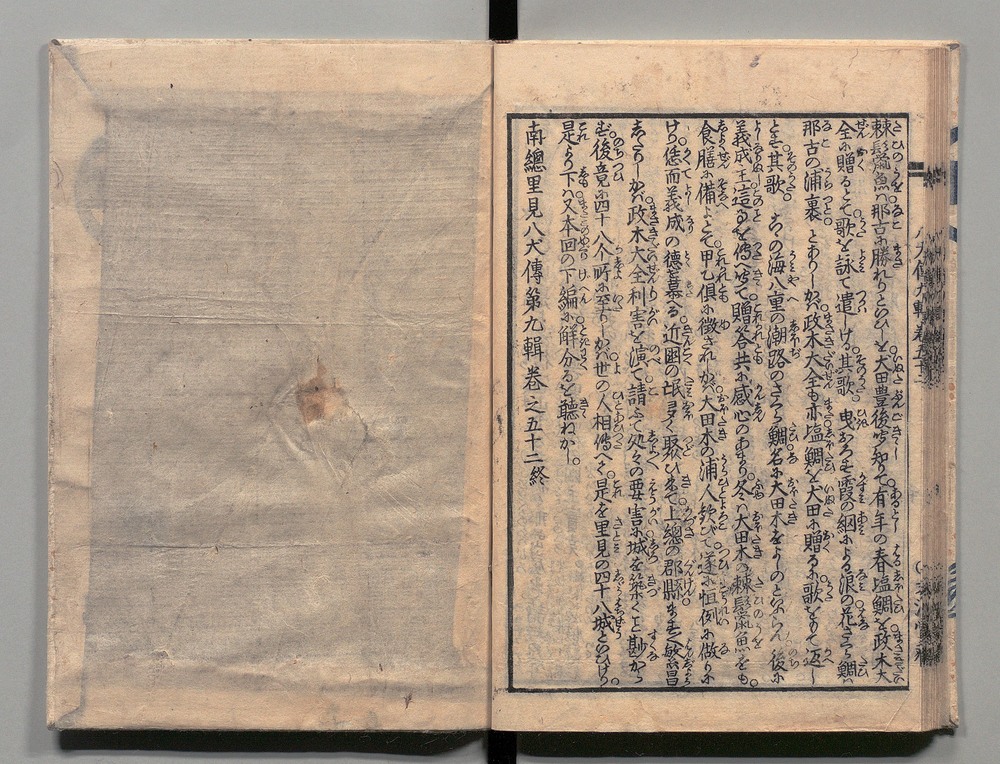 棘鬣魚ハ那古に勝れりといひしを大田豊後守知りて有年の春塩鯛を政木大
全に贈るとて歌を詠て遣しける其歌 曳おろす霞の網による浪の花さへ鯛ハ
那古の浦裏 とありしかバ政木大全も亦塩鯛を大田に贈るに歌をもて返し
とす其歌 ちゝの海八重の潮路のさくら鯛名に大田木をよしのとならん 後に
義成王這るを傳聞て贈答共に感心のあまり冬ハ大田木の棘鬣魚をも
食膳に備よとて甲乙俱に徴されしかバ大田木の浦人歓びて遂に恒例に做りに
けり恁而義成の德を慕へる近國の氓多く聚ひ来て上總の郡縣ます〳〵繁昌
したりしかバ政木大全利害を演て請ふて処々の要害に城を築くこと尠から
ず後竟に四十八个所に至りしかバ世の人相傳へて是を里見の四十八城といひけり
是より下ハ又本回の下編に解分るを聽ねかし
南總里見八犬傳第九輯卷之五十二終
八犬傳九輯卷五十二